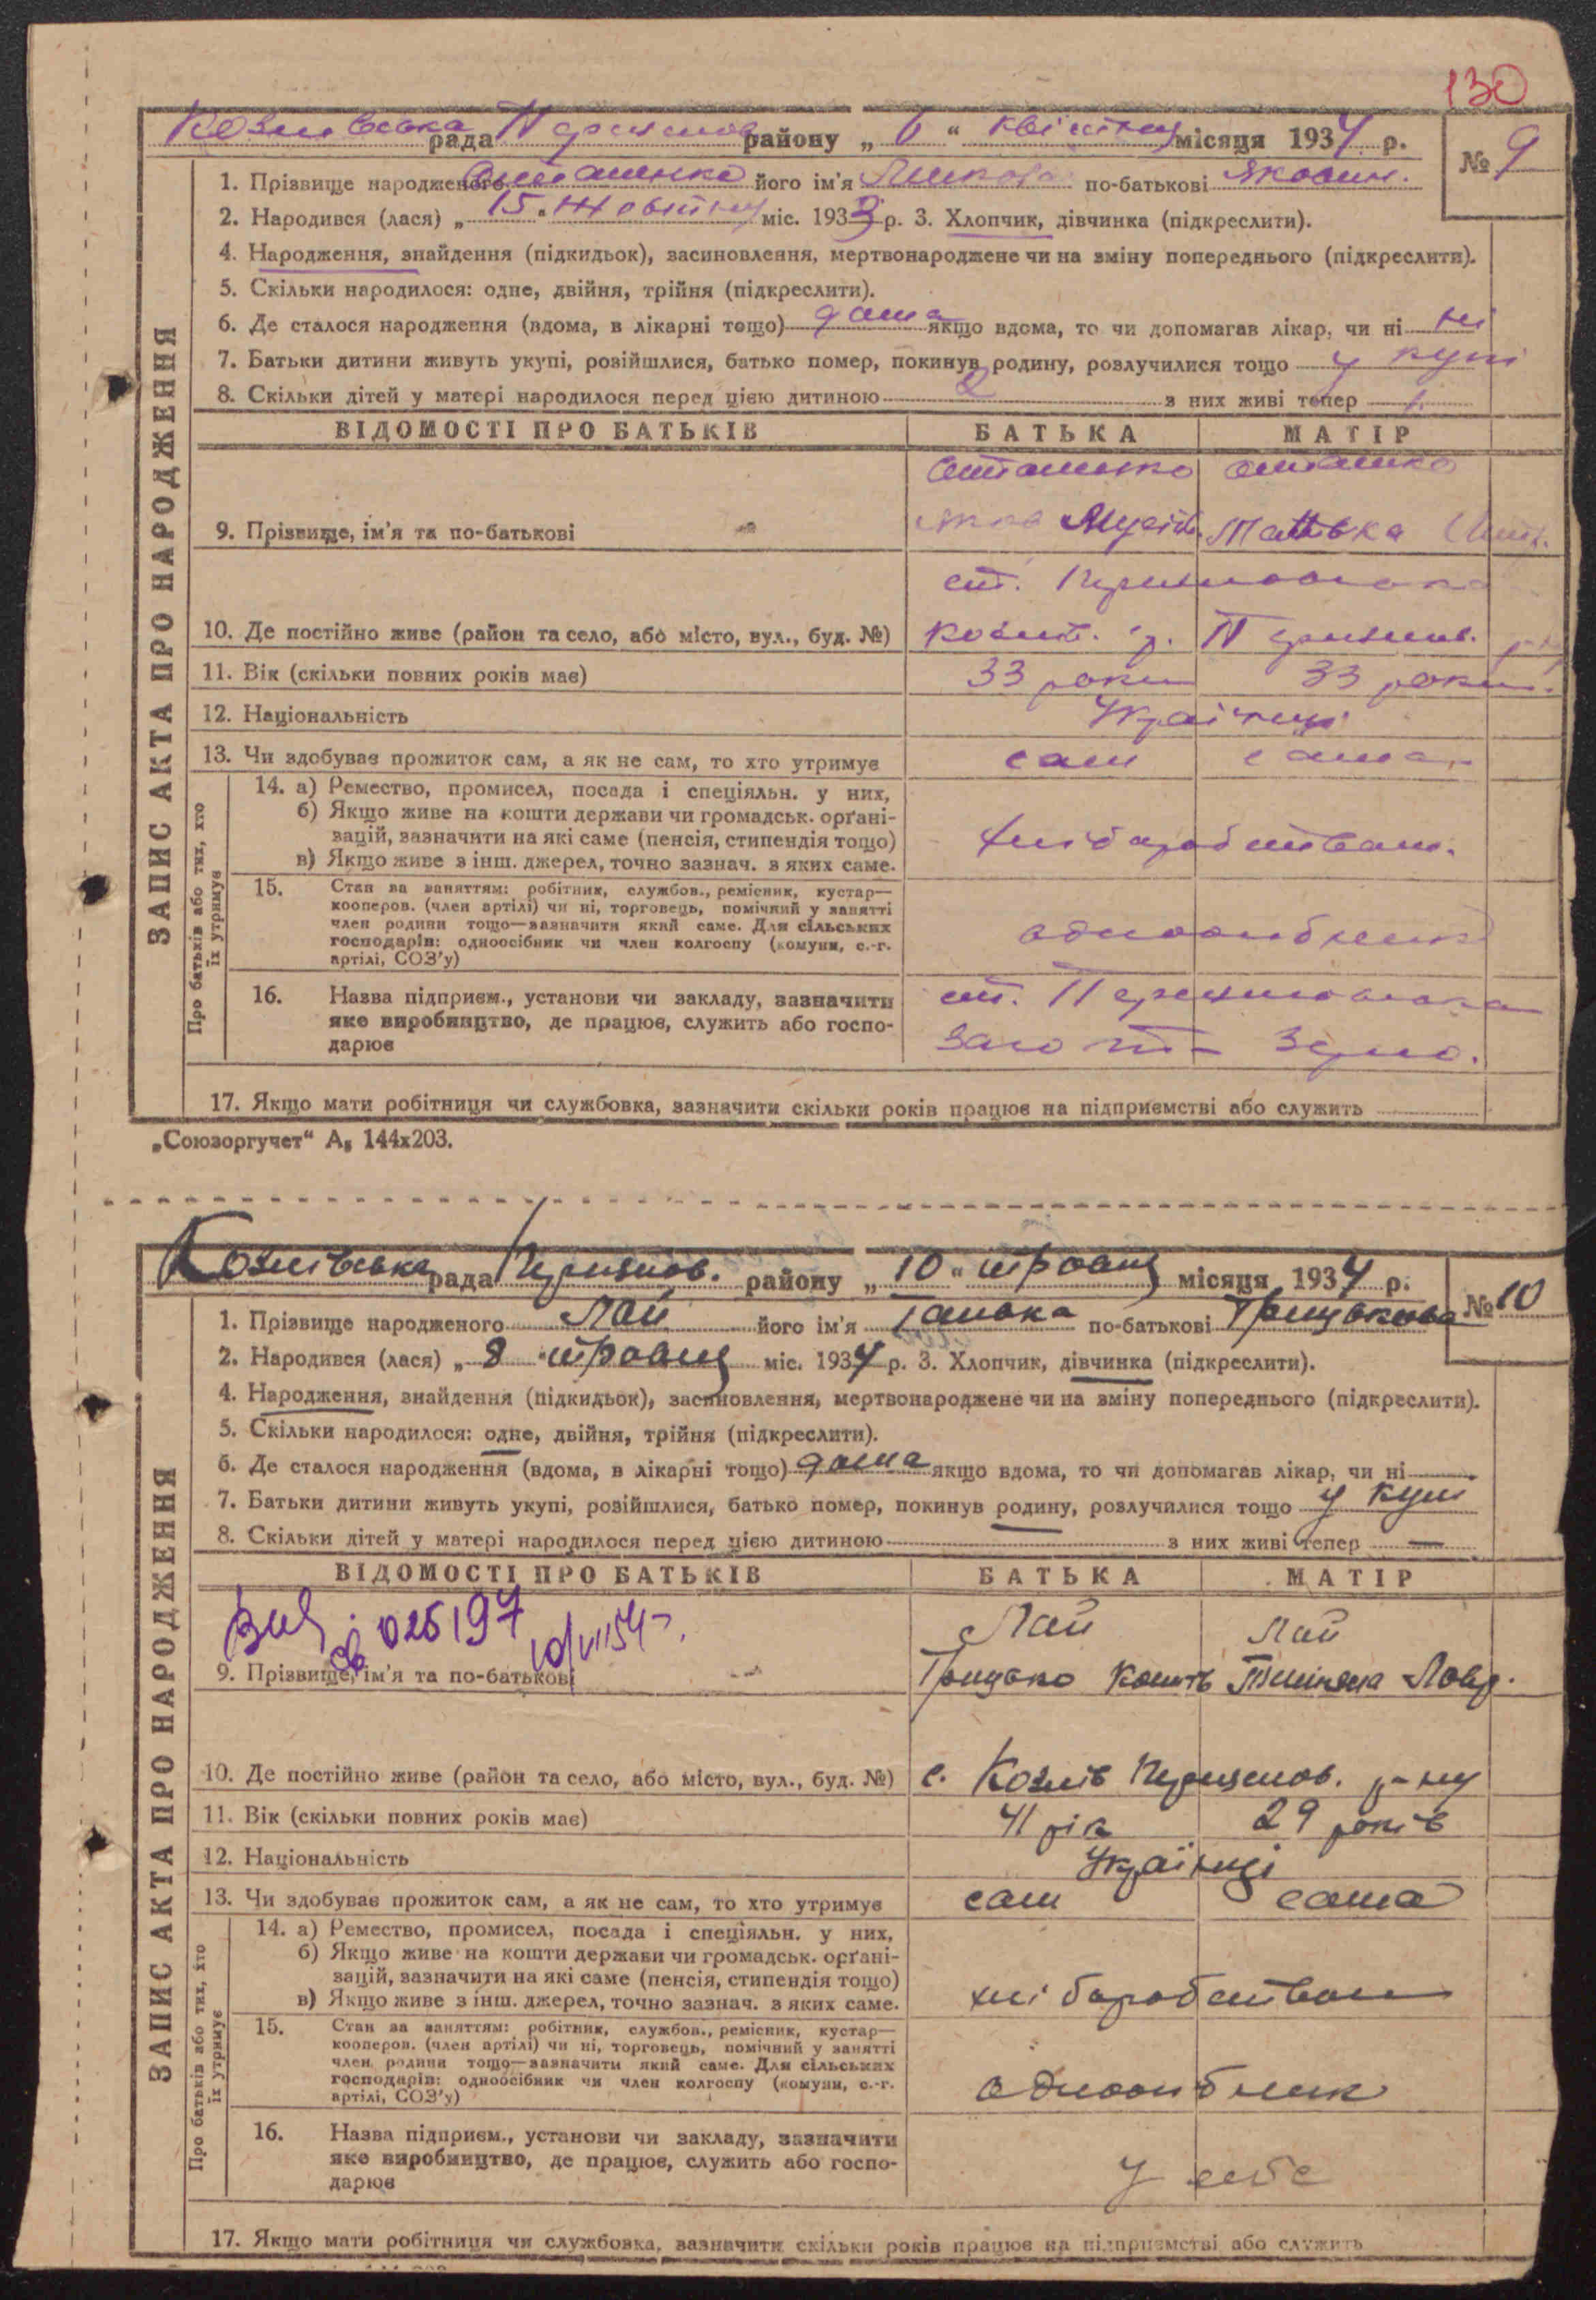 130
Козлівська рада Переяслов району „ 6 “ квітня місяця 1934 р.
№ 9
1. Прізвище народженого його ім'я Микола по-батькові Якович.
2. Народився (лася) „ 15 “ Жовтня міс. 1933 р. 3. Хлопчик, дівчинка (підкреслити).
4. Народження, знайдення (підкидьок), засиновлення, мертвонароджене чи на зміну попереднього (підкреслити).
5. Скільки народилося: одне, двійня, трійня (підкреслити).
6. Де сталося народження (вдома, в лікарні тощо) дома якщо вдома, то чи допомагав лікар, чи ні ні
7. Батьки дитини живуть укупі, розійшлися, батько помер, покинув родину, розлучилися тощо у купі
8. Скільки дітей у матері народилося перед цією дитиною 2 з них живі тепер 1.
ЗАПИС АКТА ПРО НАРОДЖЕННЯ
ВІДОМОСТІ ПРО БАТЬКІВ БАТЬКА МАТІР
9. Прізвище, ім'я та по-батькові
Яков Мусій. Танька
ст. Переясловська
10. Де постійно живе (район та село, або місто, вул., буд. №) Козлів. р. Переяслов.
11. Вік (скільки повних років має) 33 роки 33 роки.
12. Національність Українці
13. Чи здобуває прожиток сам, а як не сам, то хто утримує сам сама
Про батьків або тих, хто їх утримує
14. а) Ремество, промисел, посада і спеціяльн. у них,
б) Якщо живе на кошти держави чи громадськ. орґані-
зацій, зазначити на які саме (пенсія, стипендія тощо)
в) Якщо живе з інш. джерел, точно зазнач. з яких саме.
хліборобством.
15. Стан за заняттям: робітник, службов., ремісник, кустар—
кооперов. (член артілі) чи ні, торговець, помічний у занятті
член родини тощо—зазначити який саме. Для сільських
господарів: одноосібник чи член колгоспу (комуни, с.-г.
артілі, СОЗ'у)
одноосібник
16. Назва підприєм., установи чи закладу, зазначити
яке виробництво, де працює, служить або госпо-
дарює
ст. Переясловська
Загот-Зерно.
17. Якщо мати робітниця чи службовка, зазначити скільки років працює на підприємстві або служить
„Союзоргучет“ А₅ 144х203.
Козлівська рада Переяслов. району „ 10 “ травня місяця 1934 р.
№ 10
1. Прізвище народженого Лай його ім'я Ганька по-батькові Грицькова
2. Народився (лася) „ 8 “ травня міс. 1934 р. 3. Хлопчик, дівчинка (підкреслити).
4. Народження, знайдення (підкидьок), засиновлення, мертвонароджене чи на зміну попереднього (підкреслити).
5. Скільки народилося: одне, двійня, трійня (підкреслити).
6. Де сталося народження (вдома, в лікарні тощо) дома якщо вдома, то чи допомагав лікар, чи ні
7. Батьки дитини живуть укупі, розійшлися, батько помер, покинув родину, розлучилися тощо у купі
8. Скільки дітей у матері народилося перед цією дитиною з них живі тепер —
ЗАПИС АКТА ПРО НАРОДЖЕННЯ
ВІДОМОСТІ ПРО БАТЬКІВ БАТЬКА МАТІР
025197
Лай Лай
9. Прізвище, ім'я та по-батькові Грицько Лавр.
10. Де постійно живе (район та село, або місто, вул., буд. №) с. Козлів Переяслов. р-ну
11. Вік (скільки повних років має) 41 рік 29 років
12. Національність Українці
13. Чи здобуває прожиток сам, а як не сам, то хто утримує сам сама
Про батьків або тих, хто їх утримує
14. а) Ремество, промисел, посада і спеціяльн. у них,
б) Якщо живе на кошти держави чи громадськ. орґані-
зацій, зазначити на які саме (пенсія, стипендія тощо)
в) Якщо живе з інш. джерел, точно зазнач. з яких саме.
хліборобством
15. Стан за заняттям: робітник, службов., ремісник, кустар—
кооперов. (член артілі) чи ні, торговець, помічний у занятті
член родини тощо—зазначити який саме. Для сільських
господарів: одноосібник чи член колгоспу (комуни, с.-г.
артілі, СОЗ'у)
одноосібник
16. Назва підприєм., установи чи закладу, зазначити
яке виробництво, де працює, служить або госпо-
дарює
у себе
17. Якщо мати робітниця чи службовка, зазначити скільки років працює на підприємстві або служить